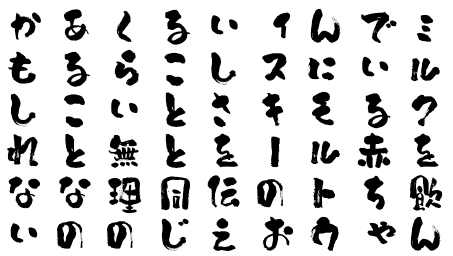 ミルクを飲ん
でいる赤ちゃ
んにモルトウ
ィスキーのお
いしさを伝え
ることと同じ
くらい無理の
あることなの
かもしれない